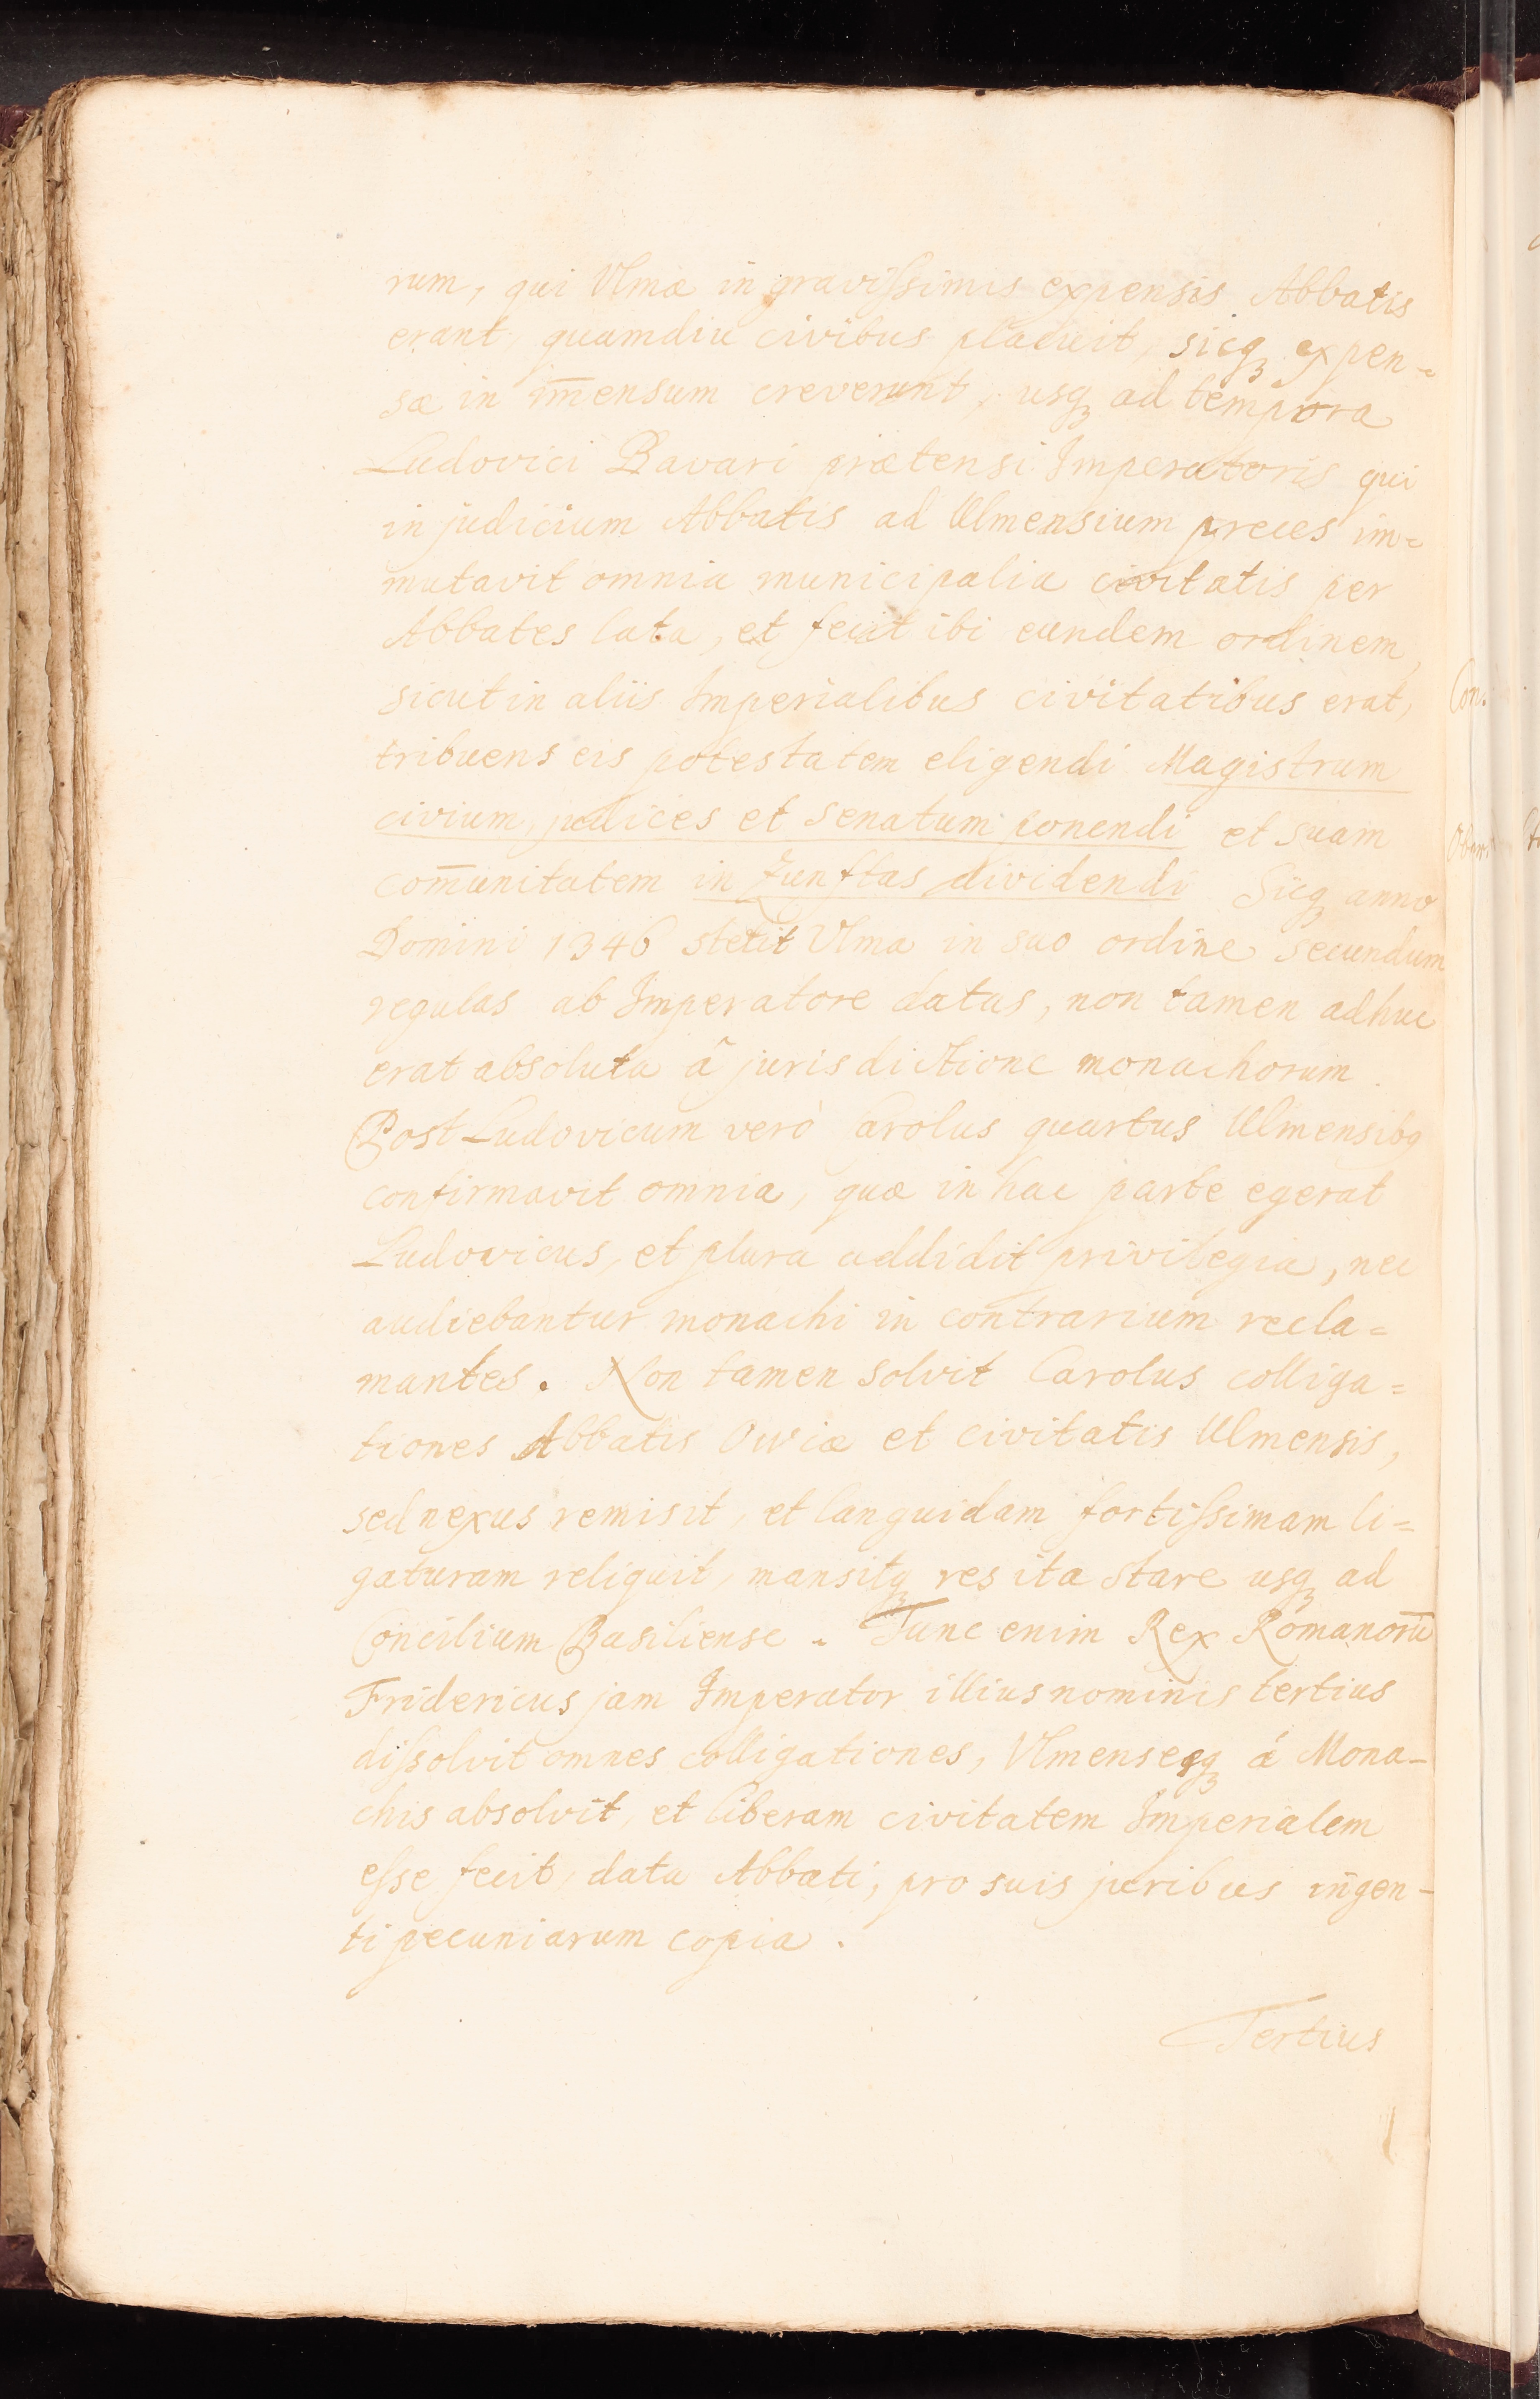 rum, qui Vlmæ in gravissimis expensis Abbatis
erant, quamdiu civibus placuit, sicqꝫ expen-
sæ in im̄ensum creverunt, usqꝫ ad tempora
Ludovici Bavari prætensi Imperatoris qui
in judicium Abbatis ad Ulmensium preces im=
mutavit omnia municipalia civitatis per
Abbates lata, et fecit ibi eundem ordinem,
sicut in aliis Imperialibus civitatibus erat,
tribuens eis potestatem eligendi Magistrum
civium, judices et senatum ponendi et suam
com̄unitatem in Zunftas dividendi Sicqꝫ anno
Domini 1346 stetit Vlma in suo ordine secundum
regulas ab Imperatore datas, non tamen adhuc
erat absoluta â jurisdictione monachorum.
Post Ludovicum verò Carolus quartus Ulmensibꝯ
confirmavit omnia, quæ in hac parte egerat
Ludovicus, et plura addidit privilegia, nec
audiebantur monachi in contrarium recla=
mantes. Non tamen solvit Carolus colliga=
tiones Abbatis Owiæ et civitatis Ulmensis,
sed nexus remisit, et languidam fortissimam li=
gaturam reliquit, mansitqꝫ res ita stare usqꝫ ad
Concilium Basiliense. Tunc enim Rex Romanorū
Fridericus jam Imperator illius nominis tertius
dissolvit omnes colligationes, Vlmensesqꝫ á Mona-
chis absolvit, et liberam civitatem Imperialem
esse fecit, data Abbati, pro suis juribus ingen-
ti pecuniarum copia.
Tertius